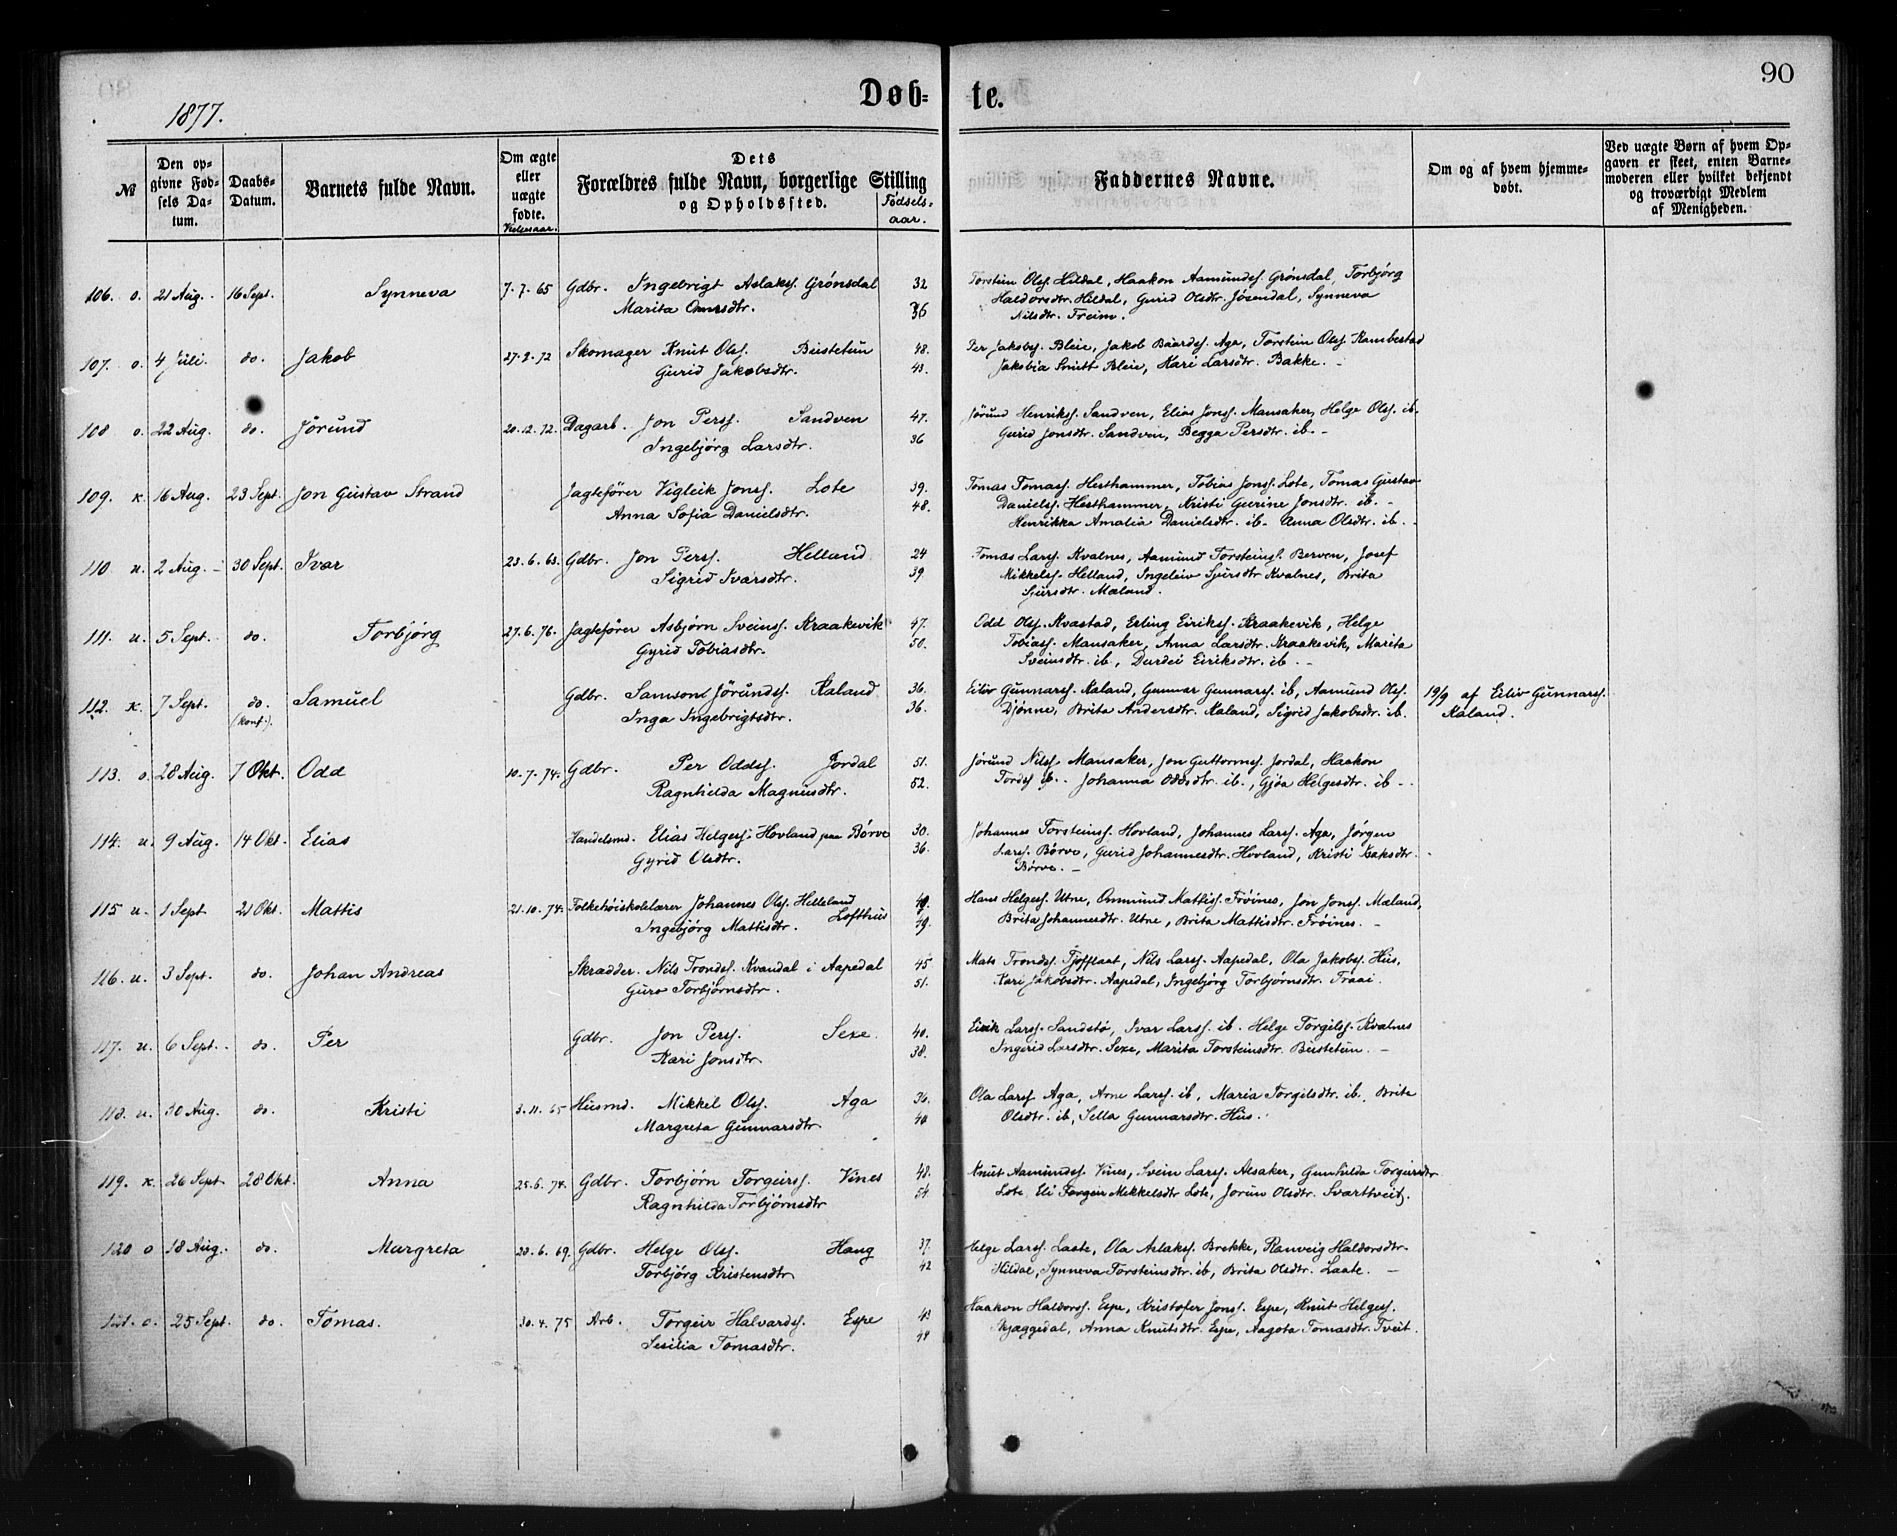 90
1877.
Døb-
te.
№
Den op-
givne Fød-
sels Da-
tum.
Daabs-
Datum.
Barnets fulde Navn.
Om ægte
eller
uægte
fødte.
Vielsesaar.
Dets
Forældres fulde Navn, borgerlige Stilling
og Opholdssted.
Fødsels-
aar.
Faddernes Navne.
Om og af hvem hjemme-
døbt.
Ved uægte Børn af hvem Op-
gaven er skeet, enten Barne-
moderen eller hvilket bekjendt
og troværdigt Medlem
af Menigheden.
106. o. 21 Aug. 16 Sept. Synneva 7. 7. 65 Gdbr. Ingebrigt Aslaks. Grønsdal 32
Marita Omundsdtr. 36
Torstein Ols. Hildal, Haakon Aamunds. Grønsdal, Torbjørg
Haldorsdtr. Hildal, Gurid Olsdtr. Jøsendal, Synneva
Nilsdtr. Freim.
107. o. 4 Juli. do. Jakob 27. 2. 72 Skomager Knut Ols. Bustetun 48.
Gurid Jakobsdtr. 43.
Per Jakobs. Bleie, Jakob Baards. Aga, Torstein Ols. Kambestad
Jakobia Smitt Bleie, Kari Larsdtr. Bakke. -
108 o. 22 Aug. do. Jørund 20. 12. 72. Dagarb. Jon Pers. Sandven 47.
Ingebjørg Larsdtr. 36
Jørund Henriks. Sandven, Elias Jons. Mansaker, Helge Ols. ib.
Gurid Jonsdtr. Sandven, Begga Persdtr. ib. -
109. k. 16 Aug. 23 Sept. Jon Gustav Strand Jagtefører Vigleik Jons. Lote 39.
Anna Sofia Danielsdtr. 48.
Tomas Tomas. Hesthammer, Tobias Jons. Lote, Tomas Gustav
Daniels. Hesthammer, Kristi Gurine Jonsdtr. ib. -
Henrikka Amalia Danielsdtr. ib. Anna Olsdtr. ib. -
110 u. 2 Aug. - 30 Sept. Ivar 23. 6. 63. Gdbr. Jon Pers. Helland 24
Sigrid Ivarsdtr. 39.
Tomas Lars. Kvalnes, Aamund Torsteins. Berven, Josef
Mikkels. Helland, Ingeleiv Sjursdtr. Kvalnes, Brita
Sjursdtr. Mæland.
111. u. 5 Sept. do. Torbjørg 27. 6. 76. Jagtefører Asbjørn Sveins. Kraakevik 47.
Gyrid Tobiasdtr. 50.
Odd Ols. Kvastad, Erling Eiriks. Kraakevik, Helge
Tobias. Mansaker, Anna Larsdtr. Kraakevik, Marita
Sveinsdtr. ib, Durdei Eiriksdtr. ib. -
112. k. 7 Sept. do. Samuel Gdbr. Samson Jørunds. Kaland. 36.
(konf.). Inga Ingebrigtsdtr. 36.
Eiliv Gunnars. Kaland, Gunnar Gunnars. ib, Aamund Ols.
Djønne, Brita Andersdtr. Kaland, Sigrid Jakobsdtr. ib.
19/9 af Eiliv Gunnars.
Kaland.
113. o. 28 Aug. 7 Okt. Odd 10. 7. 74. Gdbr. Per Odds. Jordal 51.
Ragnhilda Magnusdtr. 52.
Jørund Nils. Mansaker, Jon Guttorms. Jordal, Haakon
Tords. ib. Johanna Oddsdtr. ib., Gjøa Helgesdtr. ib -
114. u. 9 Aug. 14 Okt. Elias Handelsmd. Elias Helges. Hovland paa Børve 30.
Gyrid Olsdtr. 36.
Johannes Torsteins. Hovland, Johannes Lars. Aga, Jørgen
Lars. Børve, Gurid Johannesdtr. Hovland, Kristi Isaksdtr.
Børve. -
115 u. 1 Sept 21 Okt. Mattis 21. 10. 74. Folkehøiskolelærer Johannes Ols. Helleland 49.
Ingebjørg Mattisdtr. Lofthus 49.
Hans Helges. Utne, Ommund Mattis. Frøines, Jon Jons. Mæland,
Brita Johannesdtr. Utne, Brita Mattisdtr. Frøines. -
116. u. 3 Sept. do. Johan Andreas Skrædder. Nils Tronds. Kvandal i Aapedal 45
Guro Torbjørnsdtr. 51.
Mats Tronds. Tjoflaat, Nils Lars. Aapedal, Ola Jakobs. Hus,
Kari Jakobsdtr. Aapedal, Ingebjørg Torbjørnsdtr. Traai.
117. u. 6 Sept. do. Per Gdbr. Jon Pers. Sexe. 40.
Kari Jonsdtr. 38.
Eirik Lars. Sandstø, Ivar Lars. ib. Helge Torgils. Kvalnes
Ingerid Larsdtr. Sexe, Marita Torsteinsdtr. Bustetun. -
118. u. 30 Aug. do. Kristi 3. 11. 65 Husmd. Mikkel Ols. Aga 36.
Margreta Gunnarsdtr 40
Ola Lars. Aga, Arne Lars. ib, Maria Torgilsdtr. ib, Brita
Olsdtr. ib, Sella Gunnarsdtr. Hus.
119. k. 26 Sept 28 Okt. Anna 25. 6. 74. Gdbr. Torbjørn Torgeirs. Vines 48.
Ragnhilda Torbjørnsdtr 54.
Knut Aamunds. Vines, Svein Lars. Alsaker, Gunhilda Torgeirsdtr
Lote, Eli Torgeir Mikkelsdtr Lote, Jorun Olsdtr. Svartveit.
120 o 18 Aug. do. Margreta 20. 6. 69. Gdbr. Helge Ols. Haug 37.
Torbjørg Kristensdtr 42
Helge Lars. Laate, Ola Aslaks. Brekke, Ranveig Haldorsdtr.
Hildal, Synneva Torsteinsdtr. ib, Brita Olsdtr. Laate. -
121. o. 25 Sept. do. Tomas. 30. 4. 75 Arb. Torgeir Halvards. Espe 43
Sesilia Tomasdtr. 44
Haakon Haldors. Espe, Kristofer Jons. Espe, Knut Helges.
Skjæggedal, Anna Knutsdtr. Espe, Aagota Tomasdtr. Tveit.